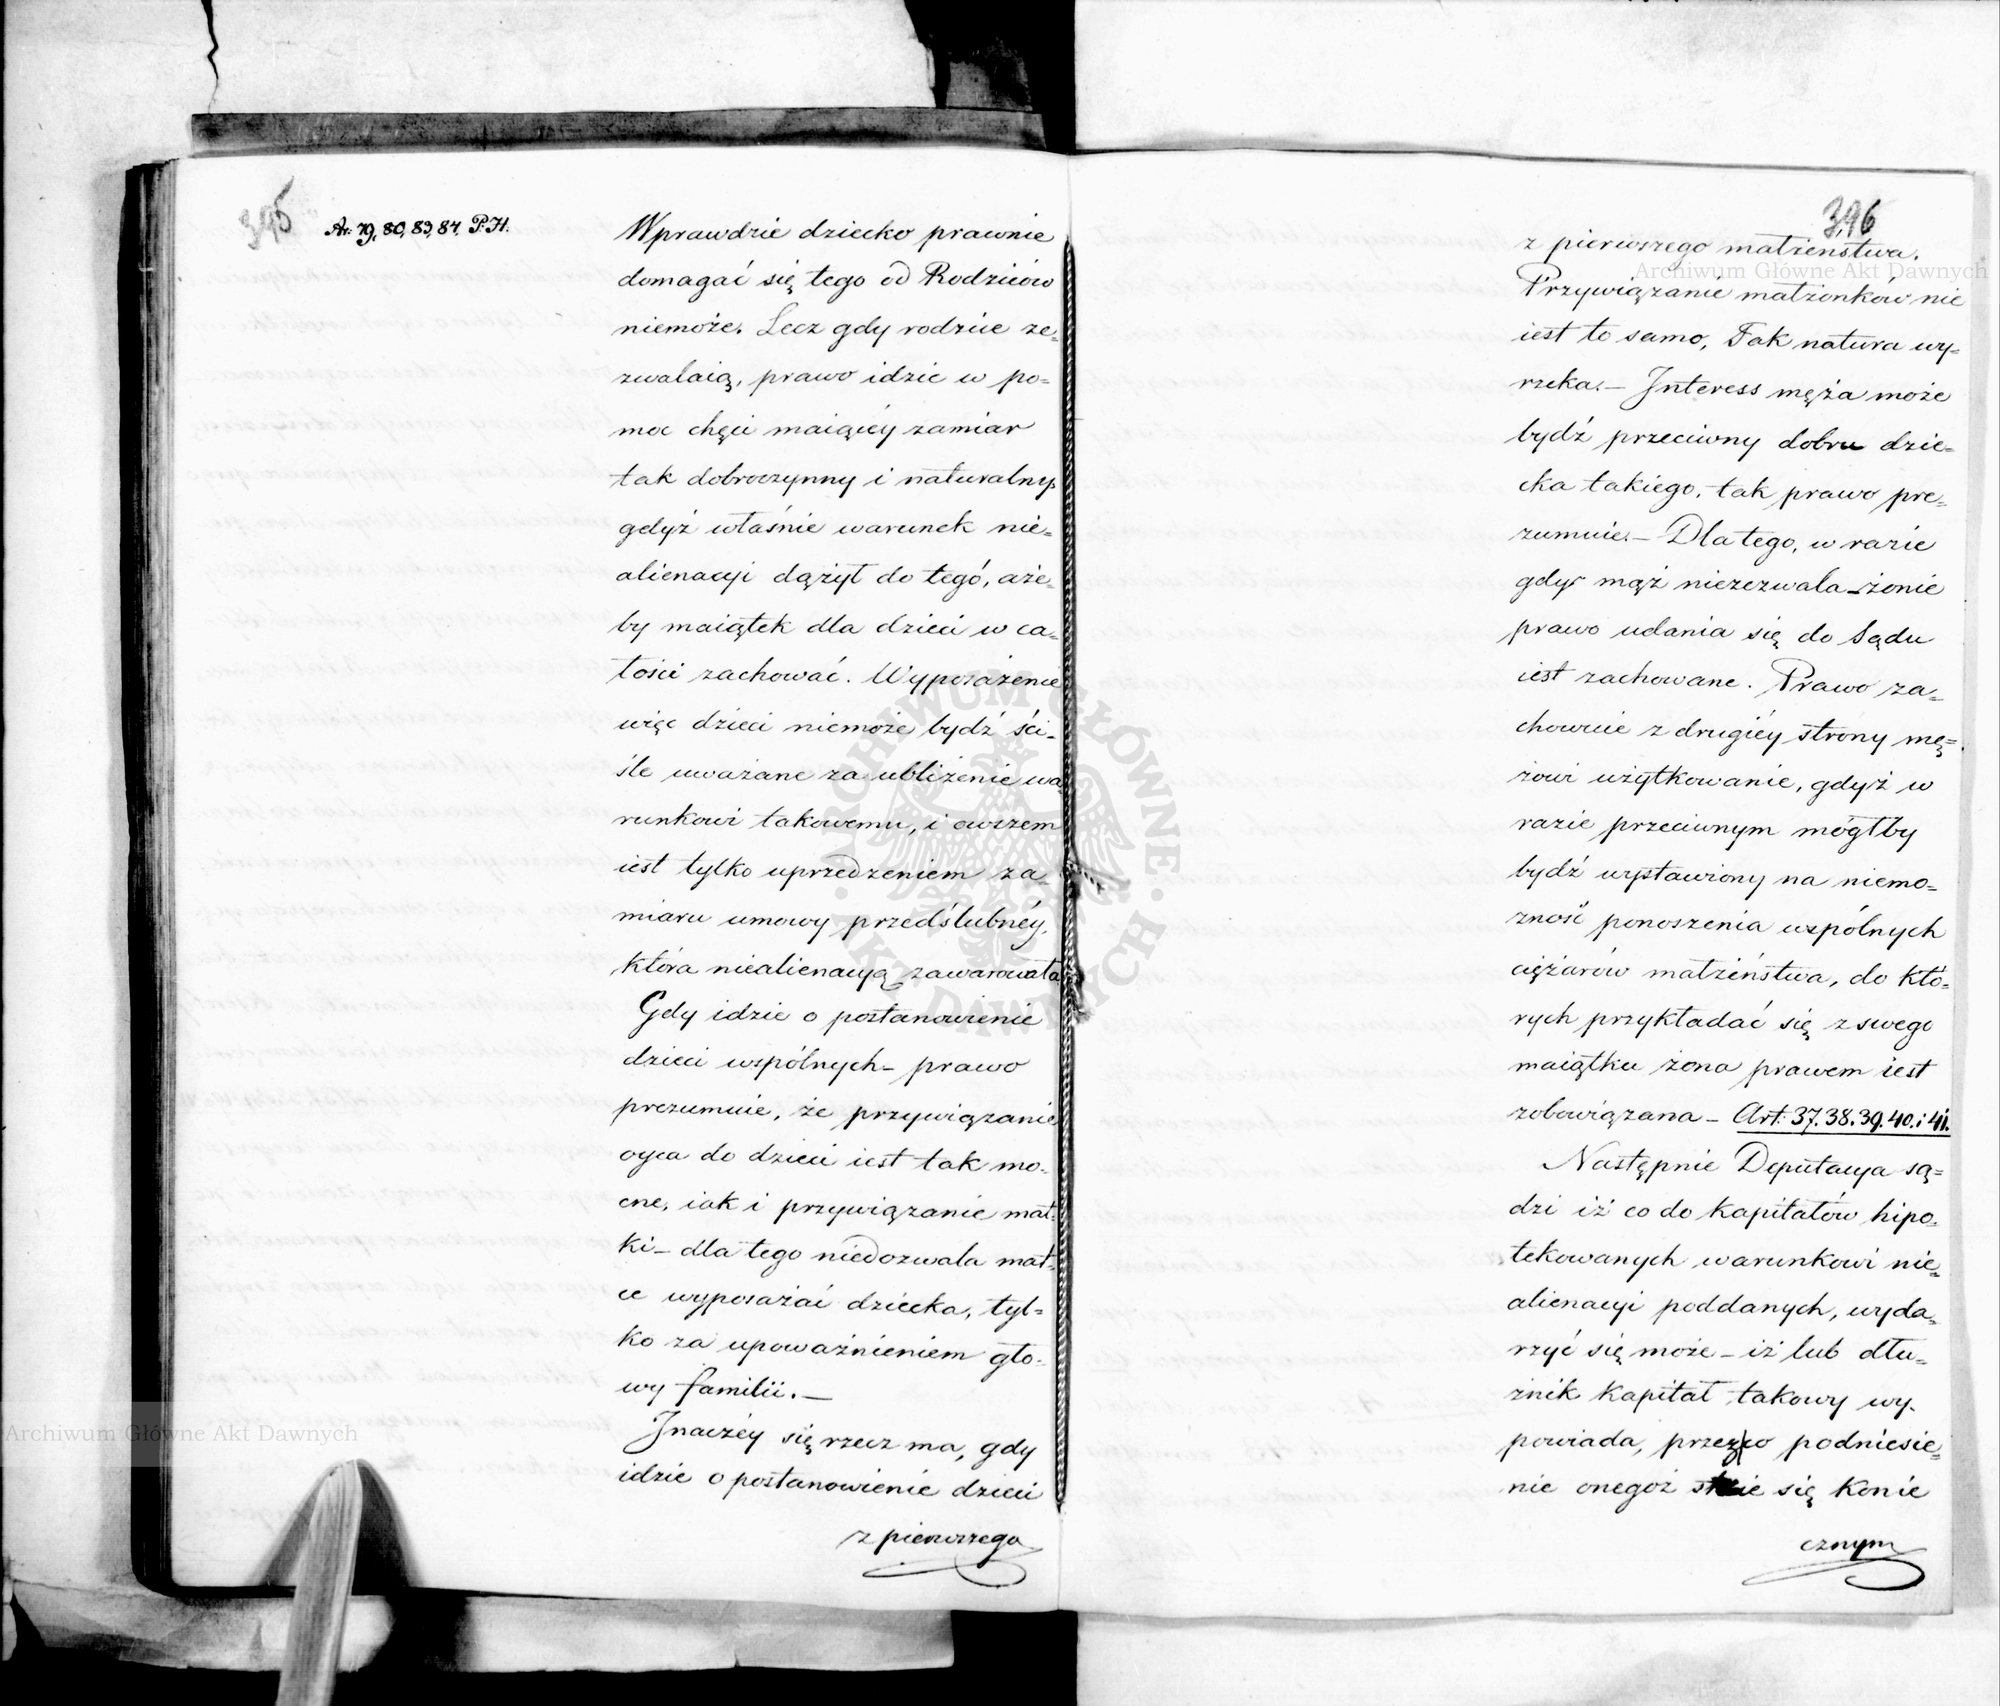 395
Ar: 79, 80, 83, 84. P. H.
Wprawdzie dziecko prawnie
domagać się tego od Rodziców
niemoże. Lecz gdy rodzice ze=
zwalaią, prawo idzie w po=
moc chęci maiącéy zamiar
tak dobroczynny i naturalny
gdyż właśnie warunek nie=
alienacyi dążył do tego, aże=
by maiątek dla dzieci w ca=
łości zachować. Wyposażenie
więc dzieci niemoże bydź ści=
śle uważane za ubliżenie wa=
runkowi takowemu, i owszem
iest tylko uprzedzeniem za=
miaru umowy przedślubnéy,
która niealienacyą zawarowała
Gdy idzie o postanowienie
dzieci wspólnych – prawo
prezumuie, że przywiązanie
oyca do dzieci iest tak mo=
cne, iak i przywiązanie mat=
ki – dla tego niedozwala mat=
ce wyposażać dziecka, tyl=
ko za upoważnieniem gło=
wy familii. –
Inaczéy się rzecz ma, gdy
idzie o postanowienie dzieci
z pierwszego
396
z pierwszego małżeństwa.
Przywiązanie małżonków nie
iest to samo, Tak natura wy=
rzeka. – Interess męża może
bydź przeciwny dobru dzie=
cka takiego, tak prawo pre=
zumuie. – Dla tego, w razie
gdy mąż niezezwala – żonie
prawo udania się do Sądu
iest zachowane. Prawo za=
chowuie z drugiéy strony mę=
żowi użytkowanie, gdyż w
razie przeciwnym mógłby
bydź wystawiony na niemo=
żność ponoszenia wspólnych
ciężarów małżeństwa, do któ=
rych przykładać się z swego
maiątku żona prawem iest
zobowiązana – Art: 37. 38. 39. 40. i 41.
Następnie Deputacya są=
dzi iż co do kapitałów hipo=
tekowanych warunkowi nie=
alienacyi poddanych, wyda=
rzyć się może – iż lub dłu=
żnik kapitał takowy wy=
powiada, przez co podniesie=
nie onegoż się konie
cznym
Archiwum Główne Akt Dawnych
Archiwum Główne Akt Dawnych
ARCHIWUM GŁÓWNE · AKT DAWNYCH ·